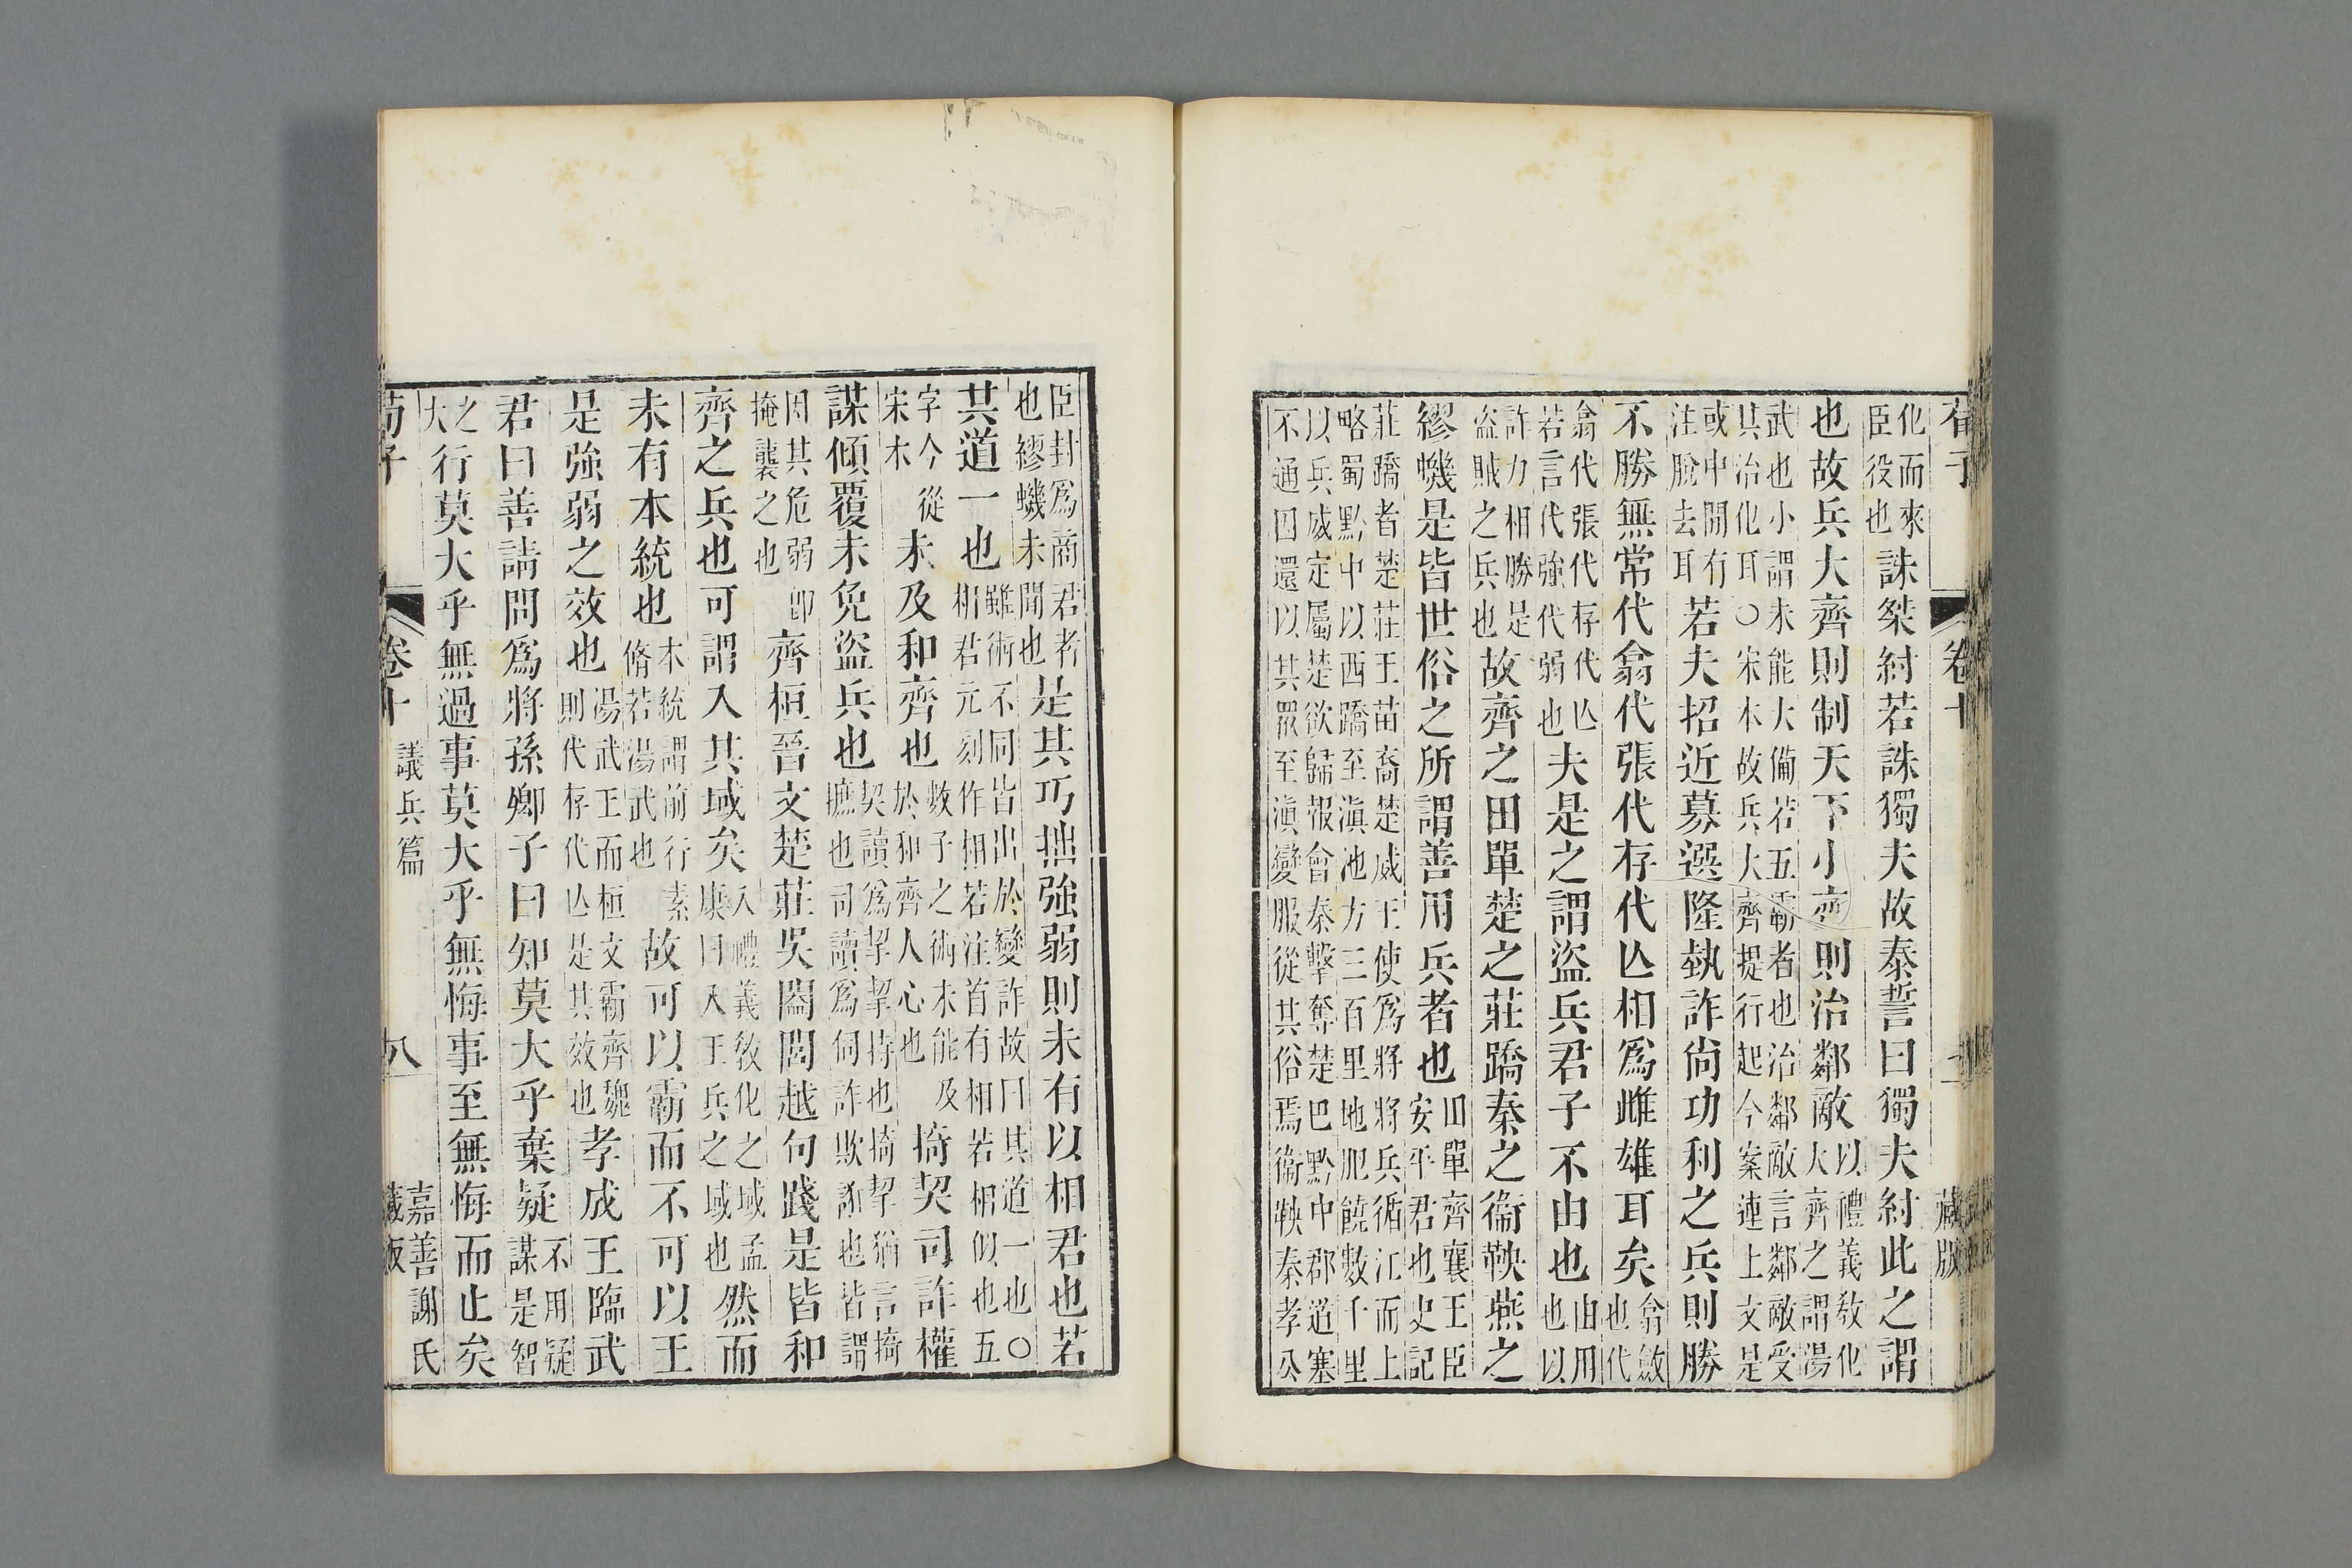 荀子　卷十　藏版
化而來
臣役也
誅桀紂若誅獨夫故泰誓曰獨夫紂此之謂
也故兵大齊則制天下小齊則治鄰敵
以禮義敎化
大齊之謂湯
武也小謂未能大備若五霸者也治鄰敵言鄰敵受
其治化耳○宋本故兵大齊提行起今案連上文是
或中閒有
注脫去耳
若夫招近募選隆埶詐尚功利之兵則勝
不勝無常代翕代張代存代亾相爲雌雄耳矣
翕斂
也代
翕代張代存代亾
若言代強代弱也
夫是之謂盜兵君子不由也
由用
也以
詐力相勝是
盜賊之兵也
故齊之田單楚之莊蹻秦之衞鞅燕之
繆蟣是皆世俗之所謂善用兵者也
田單齊襄王臣
安平君也史記
莊蹻者楚莊王苗裔楚威王使爲將將兵循江而上
略蜀黔中以西蹻至滇池方三百里地肥饒數千里
以兵威定屬楚欲歸報會秦擊奪楚巴黔中郡道塞
不通因還以其眾至滇變服從其俗焉衞鞅秦孝公
臣封爲商君者
也繆蟣未聞也
是其巧拙強弱則未有以相君也若
其道一也
雖術不同皆出於變詐故曰其道一也○
相君元刻作相若注首有相若相似也五
字今從
宋本
未及和齊也
數子之術未能及
於和齊人心也
掎契司詐權
謀傾覆未免盜兵也
契讀爲挈挈持也掎挈猶言掎
摭也司讀爲伺詐欺誑也皆謂
因其危弱卽
掩襲之也
齊桓晉文楚莊吳闔閭越句踐是皆和
齊之兵也可謂入其域矣
入禮義敎化之域孟
康曰入王兵之域也
然而
未有本統也
本統謂前行素
脩若湯武也
故可以霸而不可以王
是強弱之效也
湯武王而桓文霸齊魏
則代存代亾是其效也
孝成王臨武
君曰善請問爲將孫卿子曰知莫大乎棄疑
不用疑
謀是智
之
大
行莫大乎無過事莫大乎無悔事至無悔而止矣
荀子　卷十　議兵篇　八　嘉善謝氏
藏版